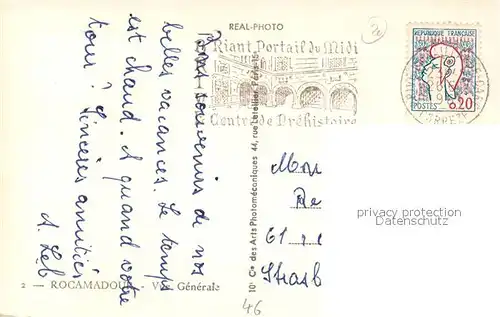 REAL-PHOTO
Riant Portail du Midi
Centre de Préhistoire
REPUBLIQUE FRANCAISE
POSTES 0,20
CORREZE
Bons souvenirs de nos
belles vacances. Le temps
est chaud. A quand votre
tour? Sincères amitiés
A. Leb
10 Cie des Arts Photomécaniques 44, rue Letellier, Paris-15e
Mon
De
61 r
Strasb
privacy protection
Datenschutz
2 — ROCAMADOUR — Vue Générale
46